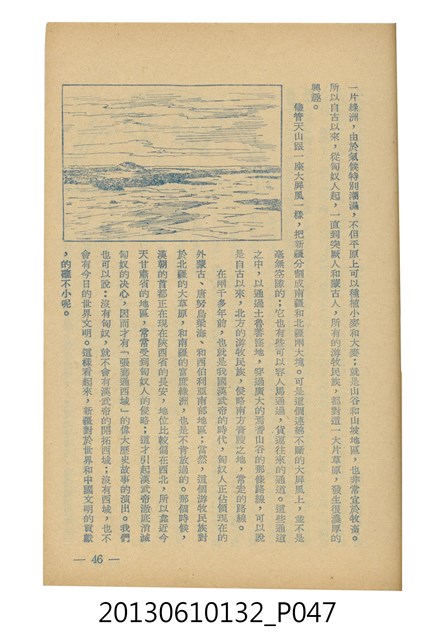 一片綠洲，由於氣候特別潮濕，不但平原上可以種植小麥和大麥；就是山谷和山坡地，也非常宜於牧畜。
所以自古以來，從匈奴人起，一直到突厥人和蒙古人，所有的游牧民族，都對這一大片草原，發生很濃厚的
興趣。
儘管天山跟一座大屏風一樣，把新疆分割成南疆和北疆兩大塊。可是這個連綿不斷的大屏風上，並不是
毫無空隙的；它也有些可以容人馬通過，貨運往來的通道。這些通道
之中，以通過土魯番窪地，穿過廣大的焉耆山谷的那條路線，可以說
是自古以來，北方的游牧民族，侵略南方膏腴之地，常走的路線。
在兩千多年前，也就是我國漢武帝的時代，匈奴人正佔領現在的
外蒙古、唐努烏梁海、和西伯利亞南部地區；當然，這個游牧民族對
於北疆的大草原，和南疆的富庶綠洲，也是不肯放過的。那個時候，
漢朝的首都正在現在陝西省的長安，地位比較偏在西北，所以靠近今
天甘肅省的地區，常常受到匈奴人的侵略；這才引起漢武帝澈底消滅
匈奴的決心，因而才有「張騫通西域」的偉大歷史故事的演出。我們
也可以說：沒有匈奴，就不會有漢武帝的開拓西域；沒有西域，也不
會有今日的世界文明。這樣看起來，新疆對於世界和中國文明的貢獻
，的確不小呢。
— 46 —
20130610132_P047